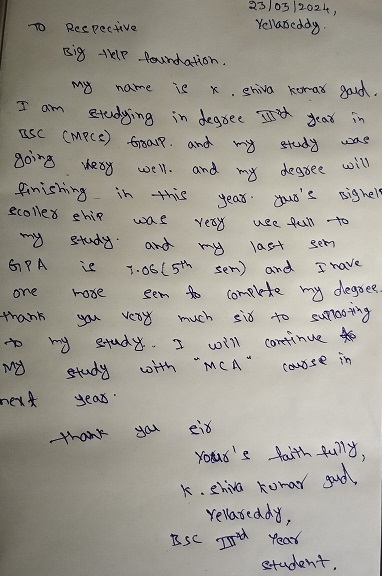 23/03/2024,
Yellareddy.
To Respective
Big Help foundation.
My name is K. shiva kumar goud.
I am studying in degree IIIrd year in
BSC (MPCs) Group. and my study was
going very well. and my degree will
finishing in this year. your's Bighelp
scoller ship was very use full to
my study. and my last sem
GPA is 7.06 (5th sem) and I have
one more sem to complete my degree.
thank you very much sir to supporting
to my study. I will continue
My study with "MCA" course in
next year.
thank you sir
Your's faith fully,
K. shiva kumar goud,
Yellareddy,
BSC IIIrd Year
student.